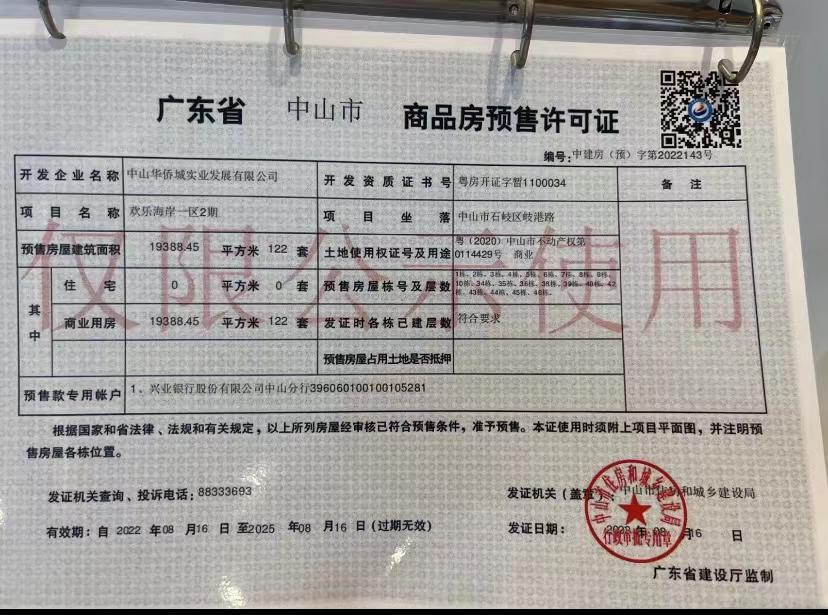 广东省 中山市 商品房预售许可证
编号:中建房（预）字第2022143号
开发企业名称 中山华侨城实业发展有限公司 开发资质证书号 粤房开证字暂1100034 备注
项目名称 欢乐海岸一区2期 项目坐落 中山市石岐区岐港路
预售房屋建筑面积 19388.45 平方米 122 套 土地使用权证号及用途 粤（2020）中山市不动产权第
0114429号 商业
其中 住宅 0 平方米 0 套 预售房屋栋号及层数 1栋、2栋、3栋、4栋、5栋、6栋、7栋、8栋、9栋、
10栋、34栋、35栋、36栋、38栋、39栋、40栋、42
栋、43栋、44栋、45栋、46栋、
商业用房 19388.45 平方米 122 套 发证时各栋已建层数 符合要求
预售房屋占用土地是否抵押
预售款专用帐户 1、兴业银行股份有限公司中山分行396060100100105281
仅限公示使用
根据国家和省法律、法规和有关规定，以上所列房屋经审核已符合预售条件，准予预售。本证使用时须附上项目平面图，并注明预
售房屋各栋位置。
发证机关查询、投诉电话：88333693 发证机关（盖章）：中山市住房和城乡建设局
有效期：自 2022 年08 月16 日 至2025 年08 月16 日（过期无效） 发证日期： 2022 年 08 月16 日
中山市住房和城乡建设局
行政审批专用章
广东省建设厅监制